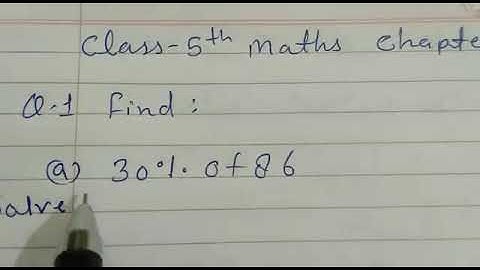 Class-5th Maths Chapte
Q.1 find :
(a) 30% of 86
Salve